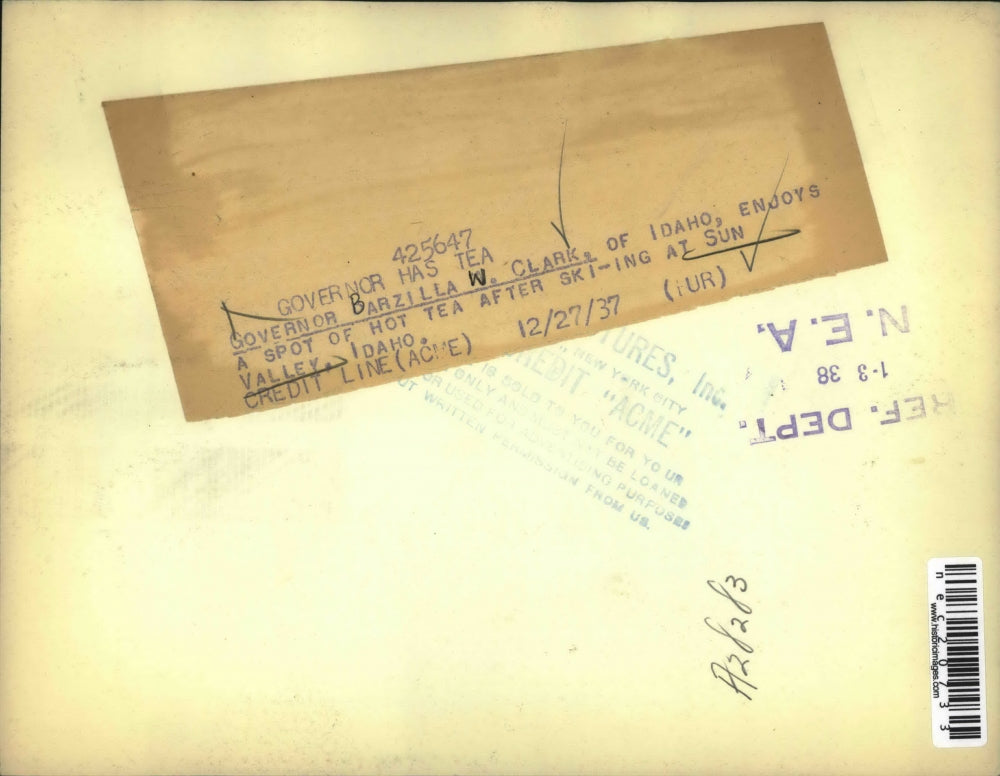 425647
GOVERNOR HAS TEA
GOVERNOR BARZILLA W. CLARK, OF IDAHO, ENJOYS
A SPOT OF HOT TEA AFTER SKI-ING AT SUN
VALLEY, IDAHO.
CREDIT LINE (ACME) 12/27/37 (UR)
TURES, Inc.
NEW YORK CITY
CREDIT "ACME"
IS SOLD TO YOU FOR YOUR
ONLY AND MUST NOT BE LOANED
OR USED FOR ADVERTISING PURPOSES
WRITTEN PERMISSION FROM US.
REF. DEPT.
1-3 38
N. E. A.
A28283
www.historicimages.com
nec20733